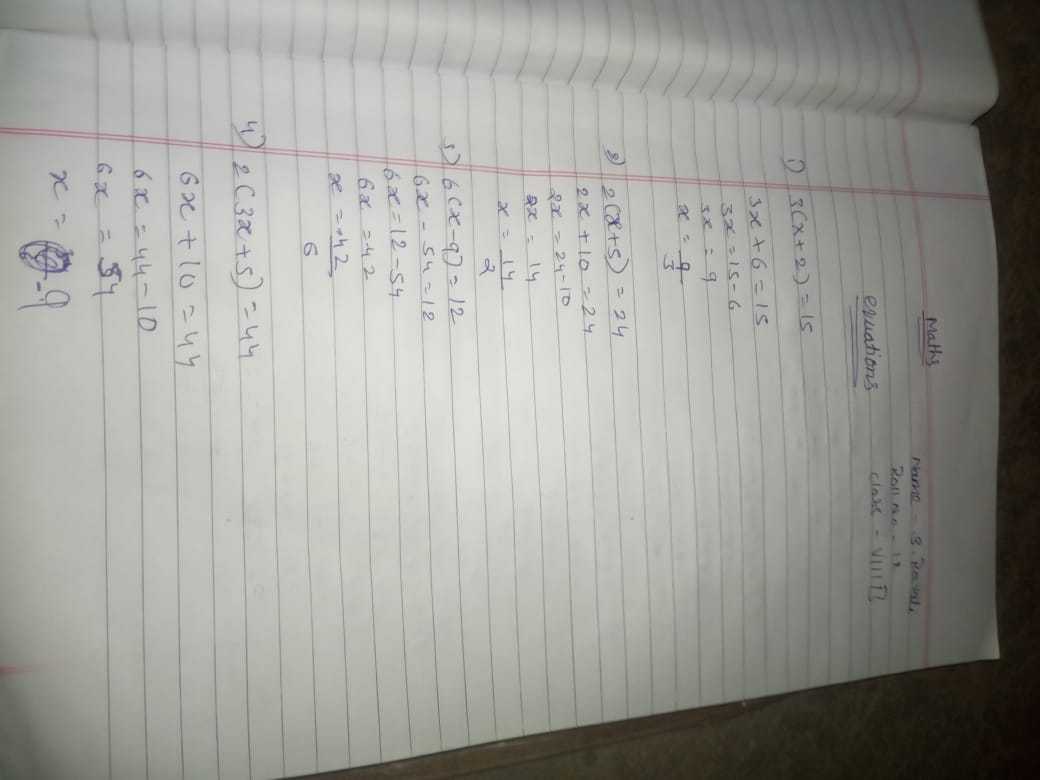 Maths
Name - S.
Roll no -
class - VIII B
equations
1) 3(x+2) = 15
3x + 6 = 15
3x = 15 - 6
3x = 9
x = 9/3
2) 2(x+5) = 24
2x + 10 = 24
2x = 24 - 10
2x = 14
x = 14/2
3) 6(x-9) = 12
6x - 54 = 12
6x = 12 - 54
6x = 42
x = -42/6
4) 2(3x+5) = 44
6x + 10 = 44
6x = 44 - 10
6x = 54
x = -9